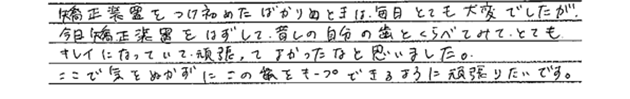 矯正装置をつけ初めたばかりのときは、毎日とても大変でしたが、
今日矯正装置をはずして、昔しの自分の歯とくらべてみて、とても
キレイになっていて、頑張ってよかったなと思いました。
ここで気をぬかずにこの歯をキープできるように頑張りたいです。